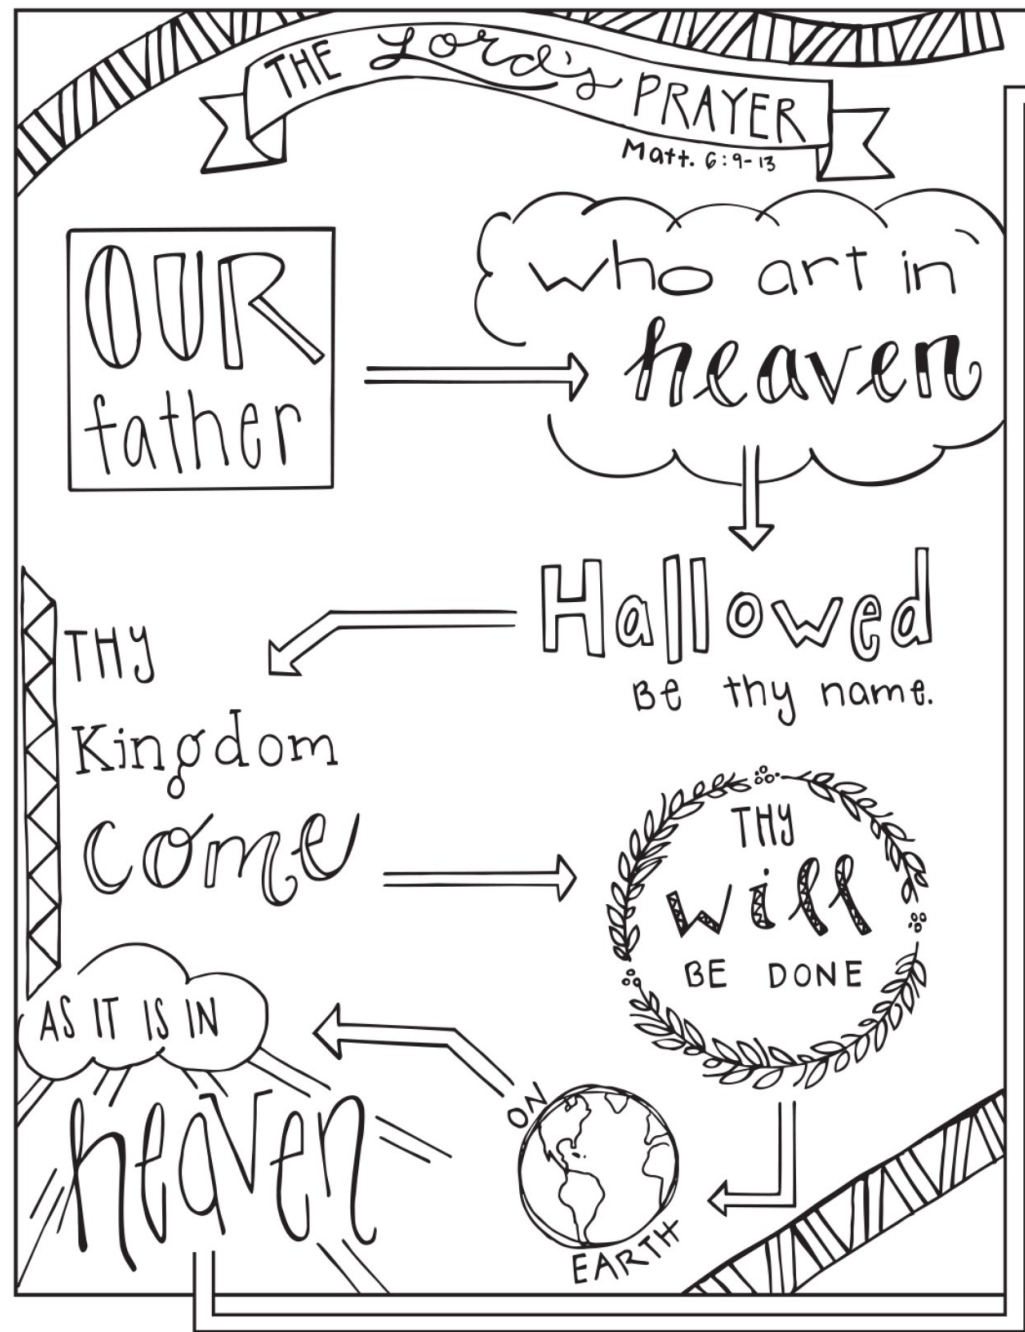 THE Lord's PRAYER
Matt. 6:9-13
OUR
father
who art in
heaven
Hallowed
Be thy name.
THY
Kingdom
come
THY
will
BE DONE
ON
EARTH
AS IT IS IN
heaven